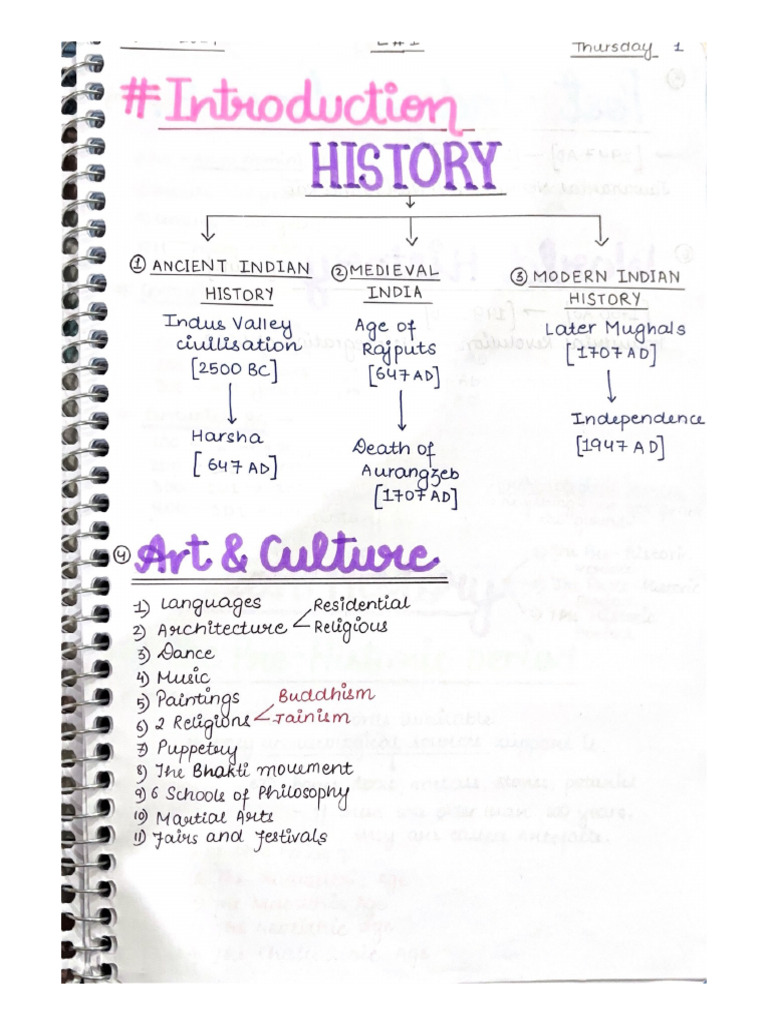 Thursday 1
#Introduction
HISTORY
① ANCIENT INDIAN
HISTORY
Indus Valley
civilisation
[2500 BC]
Harsha
[647 AD]
② MEDIEVAL
INDIA
Age of
Rajputs
[647 AD]
Death of
Aurangzeb
[1707 AD]
③ MODERN INDIAN
HISTORY
Later Mughals
[1707 AD]
Independence
[1947 AD]
④ Art & Culture
1) Languages
2) Architecture < Residential
Religious
3) Dance
4) Music
5) Paintings
6) 2 Religions < Buddhism
Jainism
7) Puppetry
8) The Bhakti movement
9) 6 Schools of Philosophy
10) Martial Arts
11) Fairs and Festivals